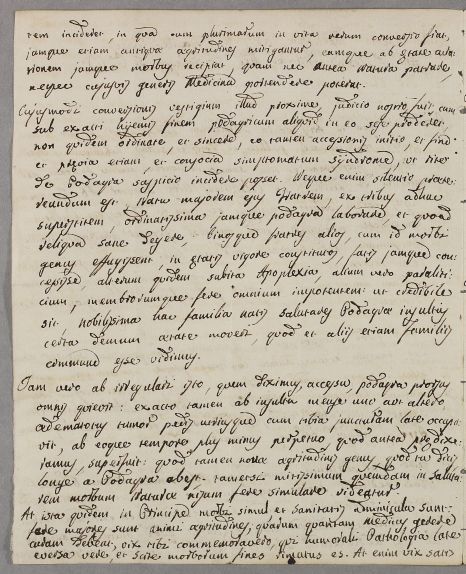 rem incideret, in qua cum plurimarum in vita rerum conversio fiat,
jamque etiam antiquæ ægritudines mitigantur, eumque ab ætate
rionem jamque morbus recipiat, quam nec antea natura
neque cujusvis generis Medicina potuerat.
Cujusmodi conversionis vestigium illud proxime, judicio nostro fuit, cum
sub exacti hyemis finem podagricum aliquid in eo sese proderet
non quidem ordinate, et sincere, eo tamen accessionis initio, et fine
et etiam, et simptomatum Syndrome, ut rite
de Podagra suspicio incidere posset. Neque enim silentio præte-
reundum est, Natu majorem ejus Fratrem, ex tribus adhuc
superstitem, ordinatissima jamque podagra laborare, et quoad
reliqua sane degere, binosque fratres alios, cum id morbi
genus effugissent, in ætatis vigore constitutos, fatis jamque con-
cessisse, alterum quidem subita Apoplexia, alium vero paraliti-
cum, membrorumque fere omnium impotentem: ut credibile
sit, nobilissimæ hac familia natis salutares Podagræ insultus
certa demum ætate moveri, quod et aliis etiam familiis
commune esse vidimus.
Iam vero ab irregulari isto, quem diximus, accessu, podagra prorsus
omnis quievit: exacto tamen ab insultu mense uno aut altero
œdematosus tumor pedis utriusque cum tibia juncturam late occupa-
vit, ab eoque tempore plus minus perpetuo, quod antea
superfuit: quod tamen novæ ægritudinis genus
longe a Podagra abest, tametsi mitissimum quendam in saluta-
rem morbum naturæ nisum fere simulare videatur.
At ista quidem in Principe morbi simul et sanitatis adminicula sunt:
majores sunt animi ægritudines, quarum quantam medicus gerere
curam debeat, vix tibi commemoravero, qui humorali Pathologia late
eversa vere, et scite morborum fines es. At enim vix satis